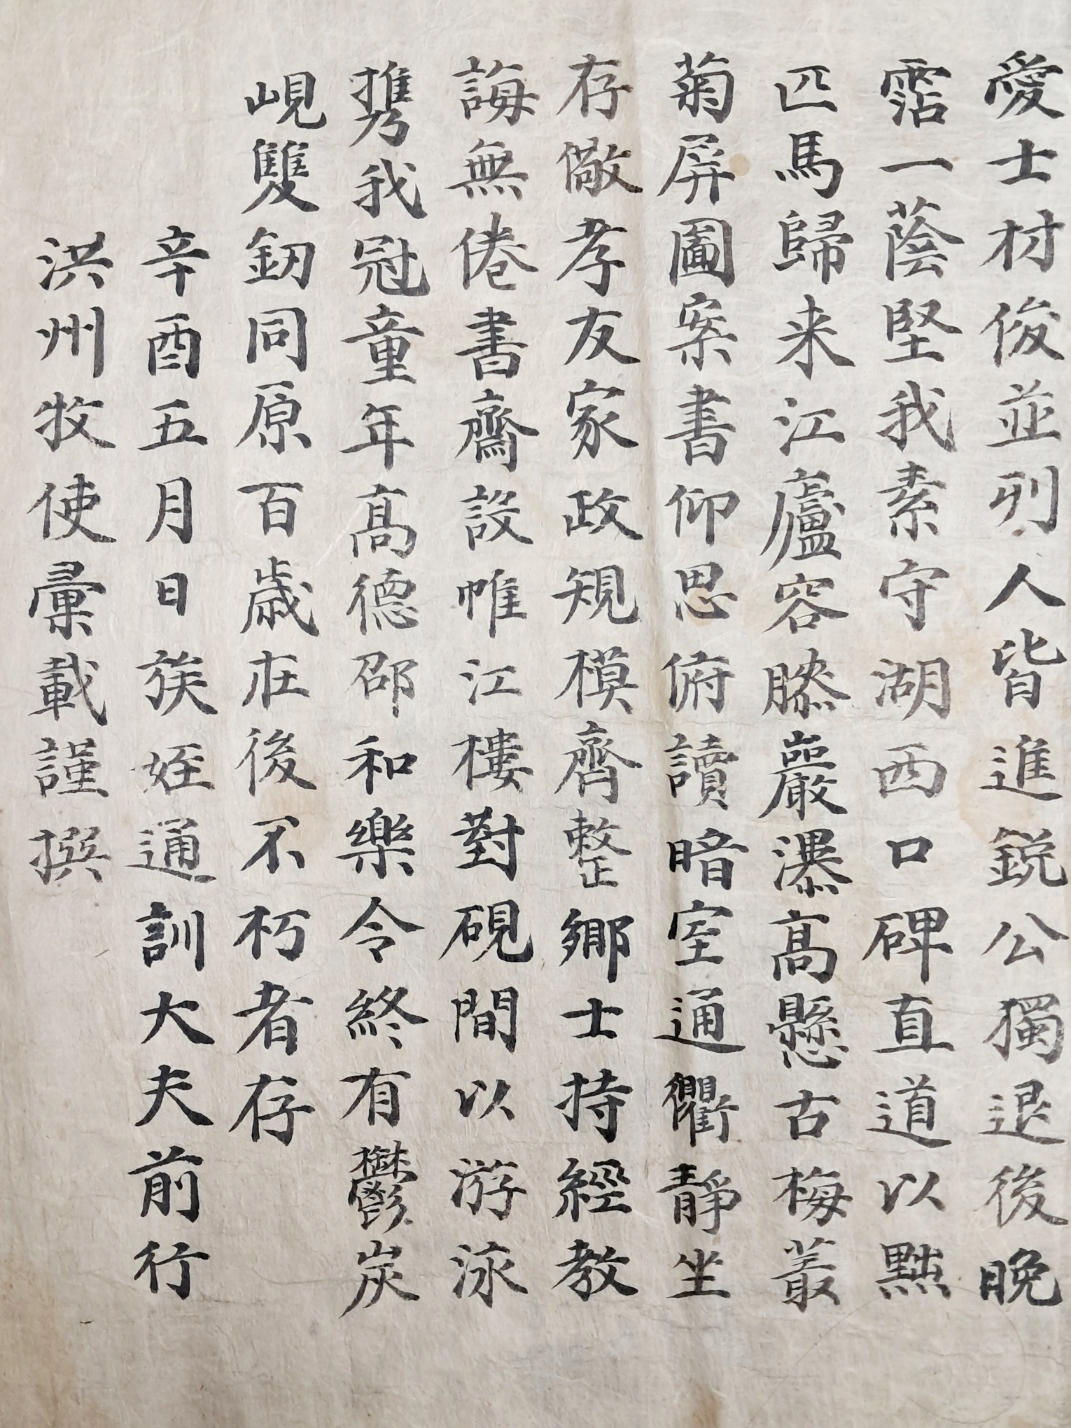 愛士材俊並列人皆進鋭公獨退後晩
霑一蔭堅我素守湖西口碑直道以黜
匹馬歸来江廬容膝巖瀑高懸古梅叢
菊屏圖案書仰思俯讀暗室通衢靜坐
存儆孝友家政規模齊整鄉士持經教
誨無倦書齋設帷江樓對硯間以游泳
携我冠童年高德邵和樂令終有鬱炭
峴雙釰同原百歲在後不朽者存
辛酉五月日族姪通訓大夫前行
洪州牧使彙載謹撰